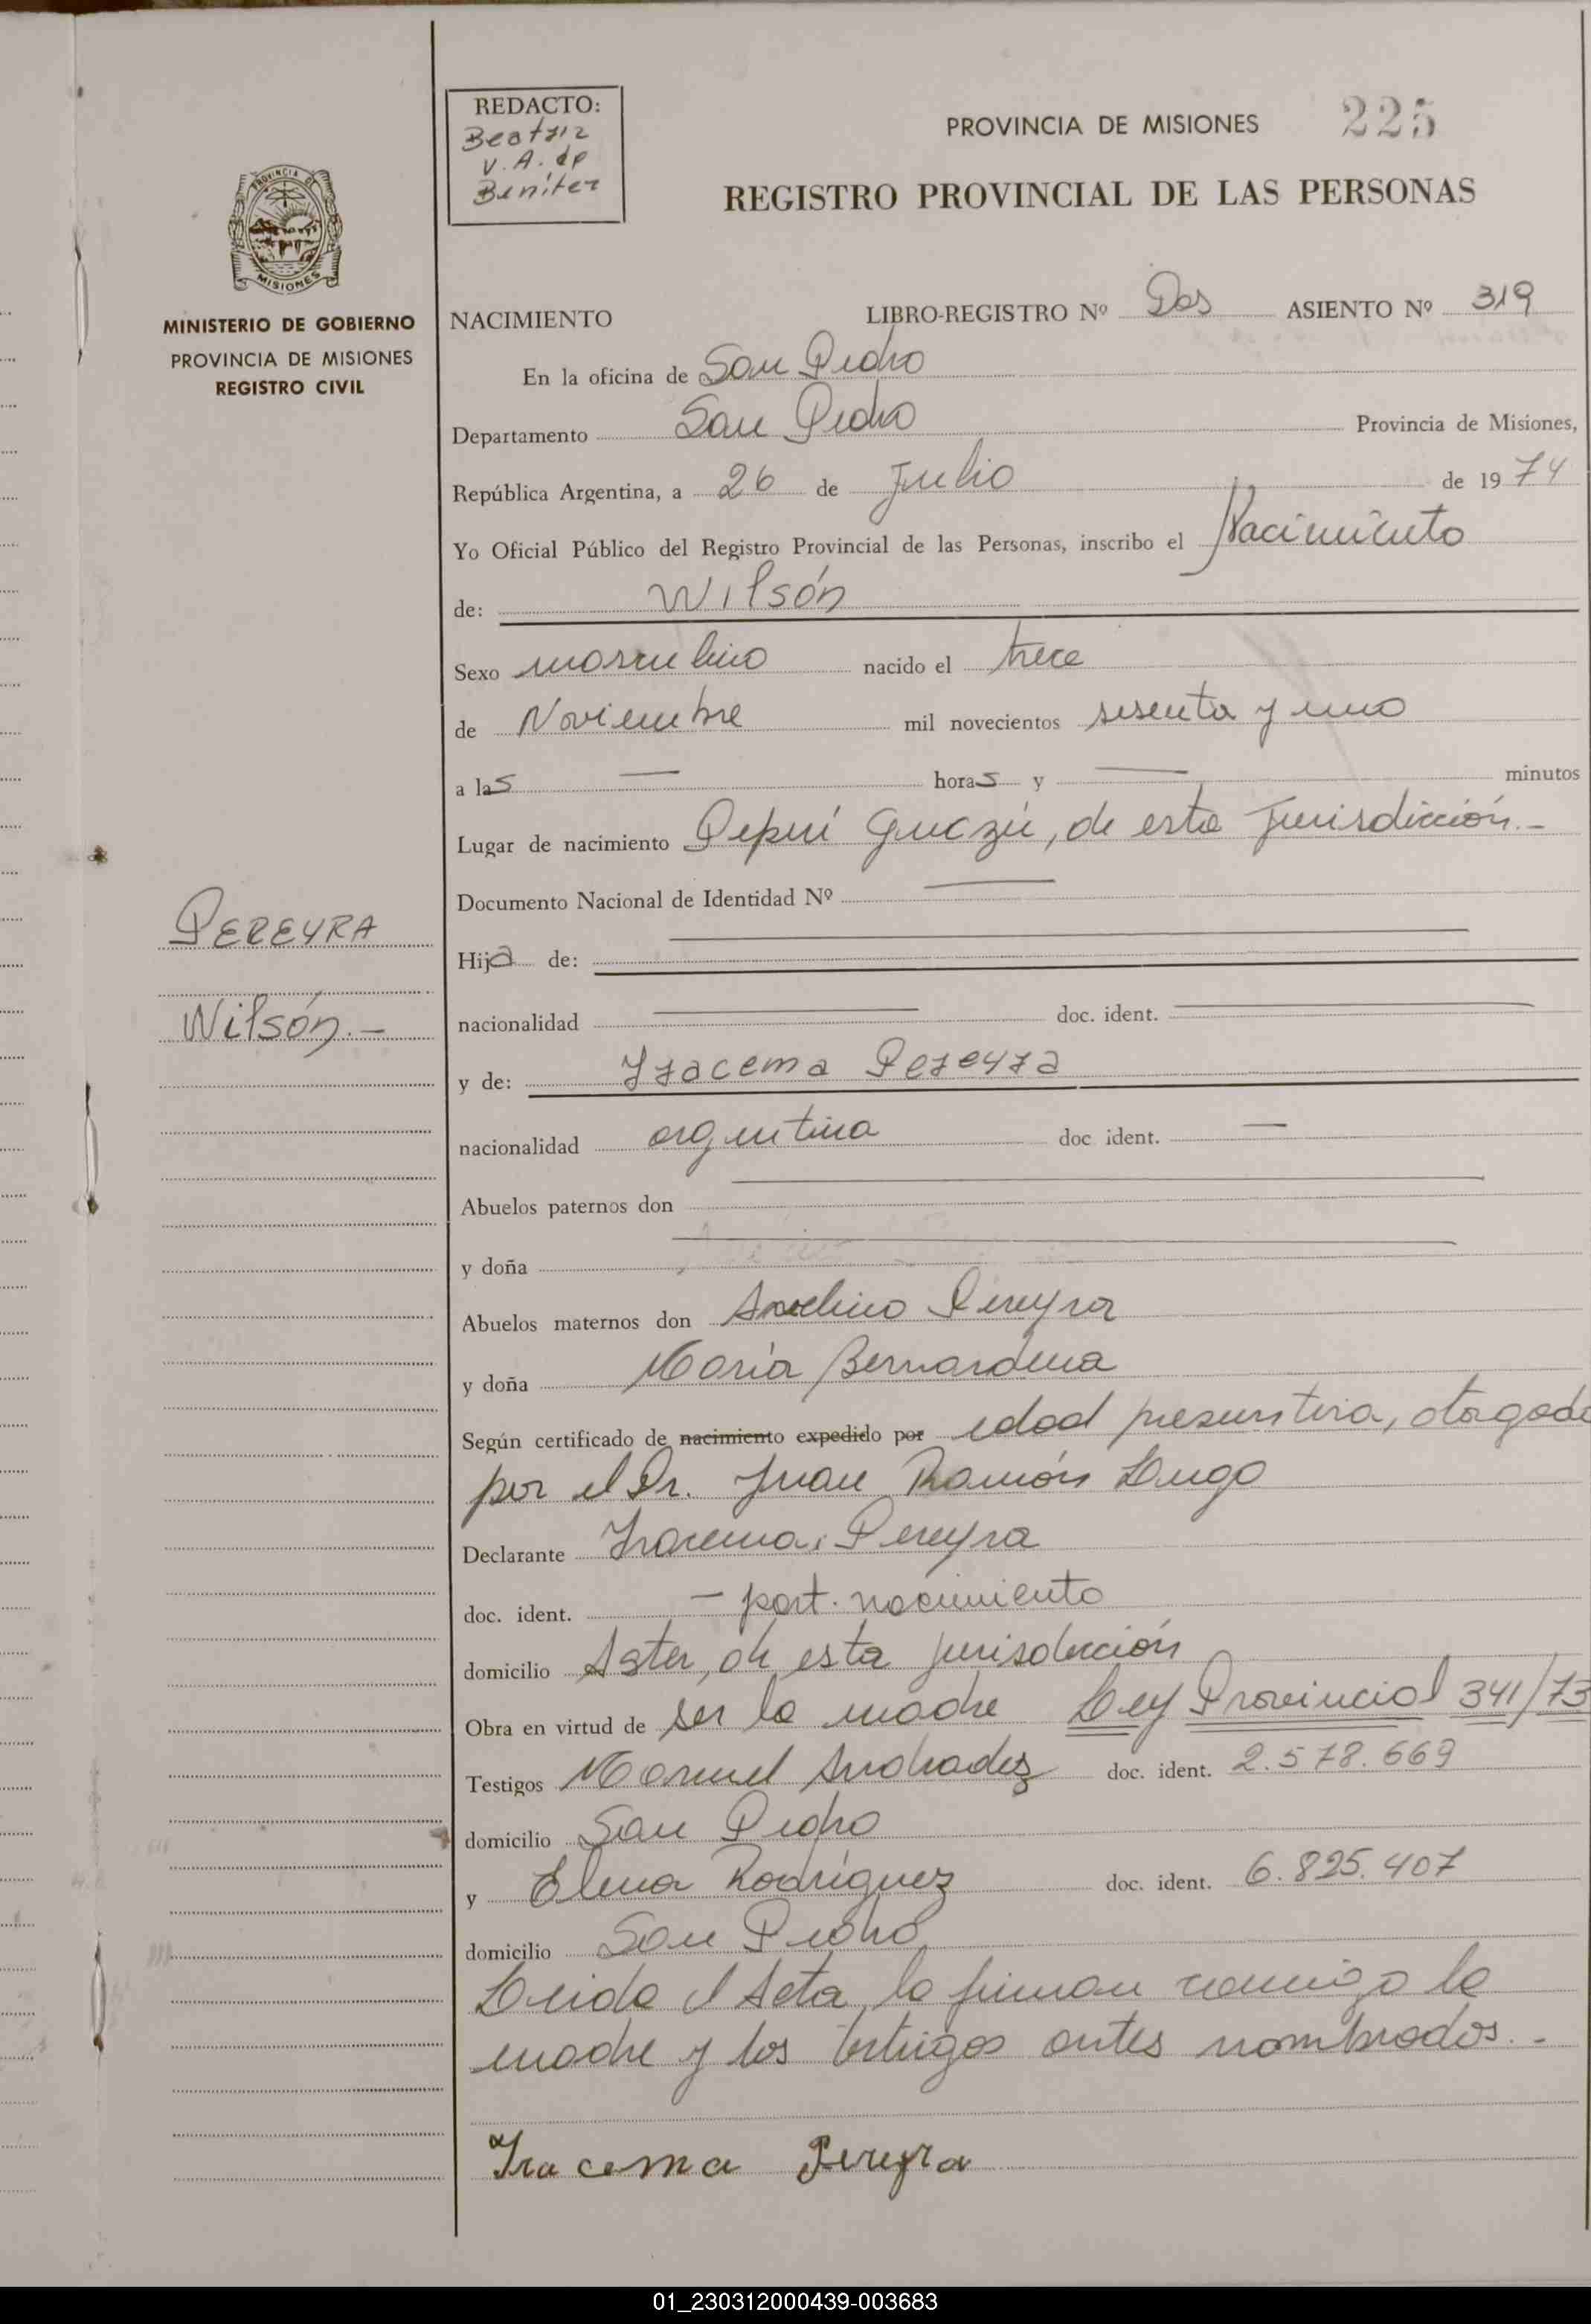 REDACTO:
Beatriz
V. A. de
Benitez
PROVINCIA DE MISIONES 225
REGISTRO PROVINCIAL DE LAS PERSONAS
PROVINCIA DE
MISIONES
MINISTERIO DE GOBIERNO
PROVINCIA DE MISIONES
REGISTRO CIVIL
NACIMIENTO LIBRO-REGISTRO Nº Dos ASIENTO Nº 319
En la oficina de San Pedro
Departamento San Pedro Provincia de Misiones,
República Argentina, a 26 de Julio de 1974
Yo Oficial Público del Registro Provincial de las Personas, inscribo el Nacimiento
de: Wilsón
Sexo masculino nacido el trece
de Noviembre mil novecientos sesenta y uno
a las — horas y — minutos
Lugar de nacimiento Pepirí Guazú, de esta Jurisdicción.-
Documento Nacional de Identidad Nº —
PEREYRA
Wilsón.-
Hijo de: —
nacionalidad — doc. ident. —
y de: Iracema Pereyra
nacionalidad argentina doc ident. —
Abuelos paternos don —
y doña —
Abuelos maternos don Pereyra
y doña María Bernardina
Según certificado de nacimiento expedido por edad presuntiva, otorgado
por el Dr. Juan Ramón Lugo
Declarante Iracema Pereyra
doc. ident. - part. nacimiento
domicilio de esta jurisdicción
Obra en virtud de ser la madre Ley Provincial 341/73
Testigos Manuel Andradez doc. ident. 2.578.669
domicilio San Pedro
y Elena Rodríguez doc. ident. 6.825.407
domicilio San Pedro
Leida el Acta, la firman conmigo la
madre y los testigos antes nombrados.-
Iracema Pereyra
01_230312000439-003683